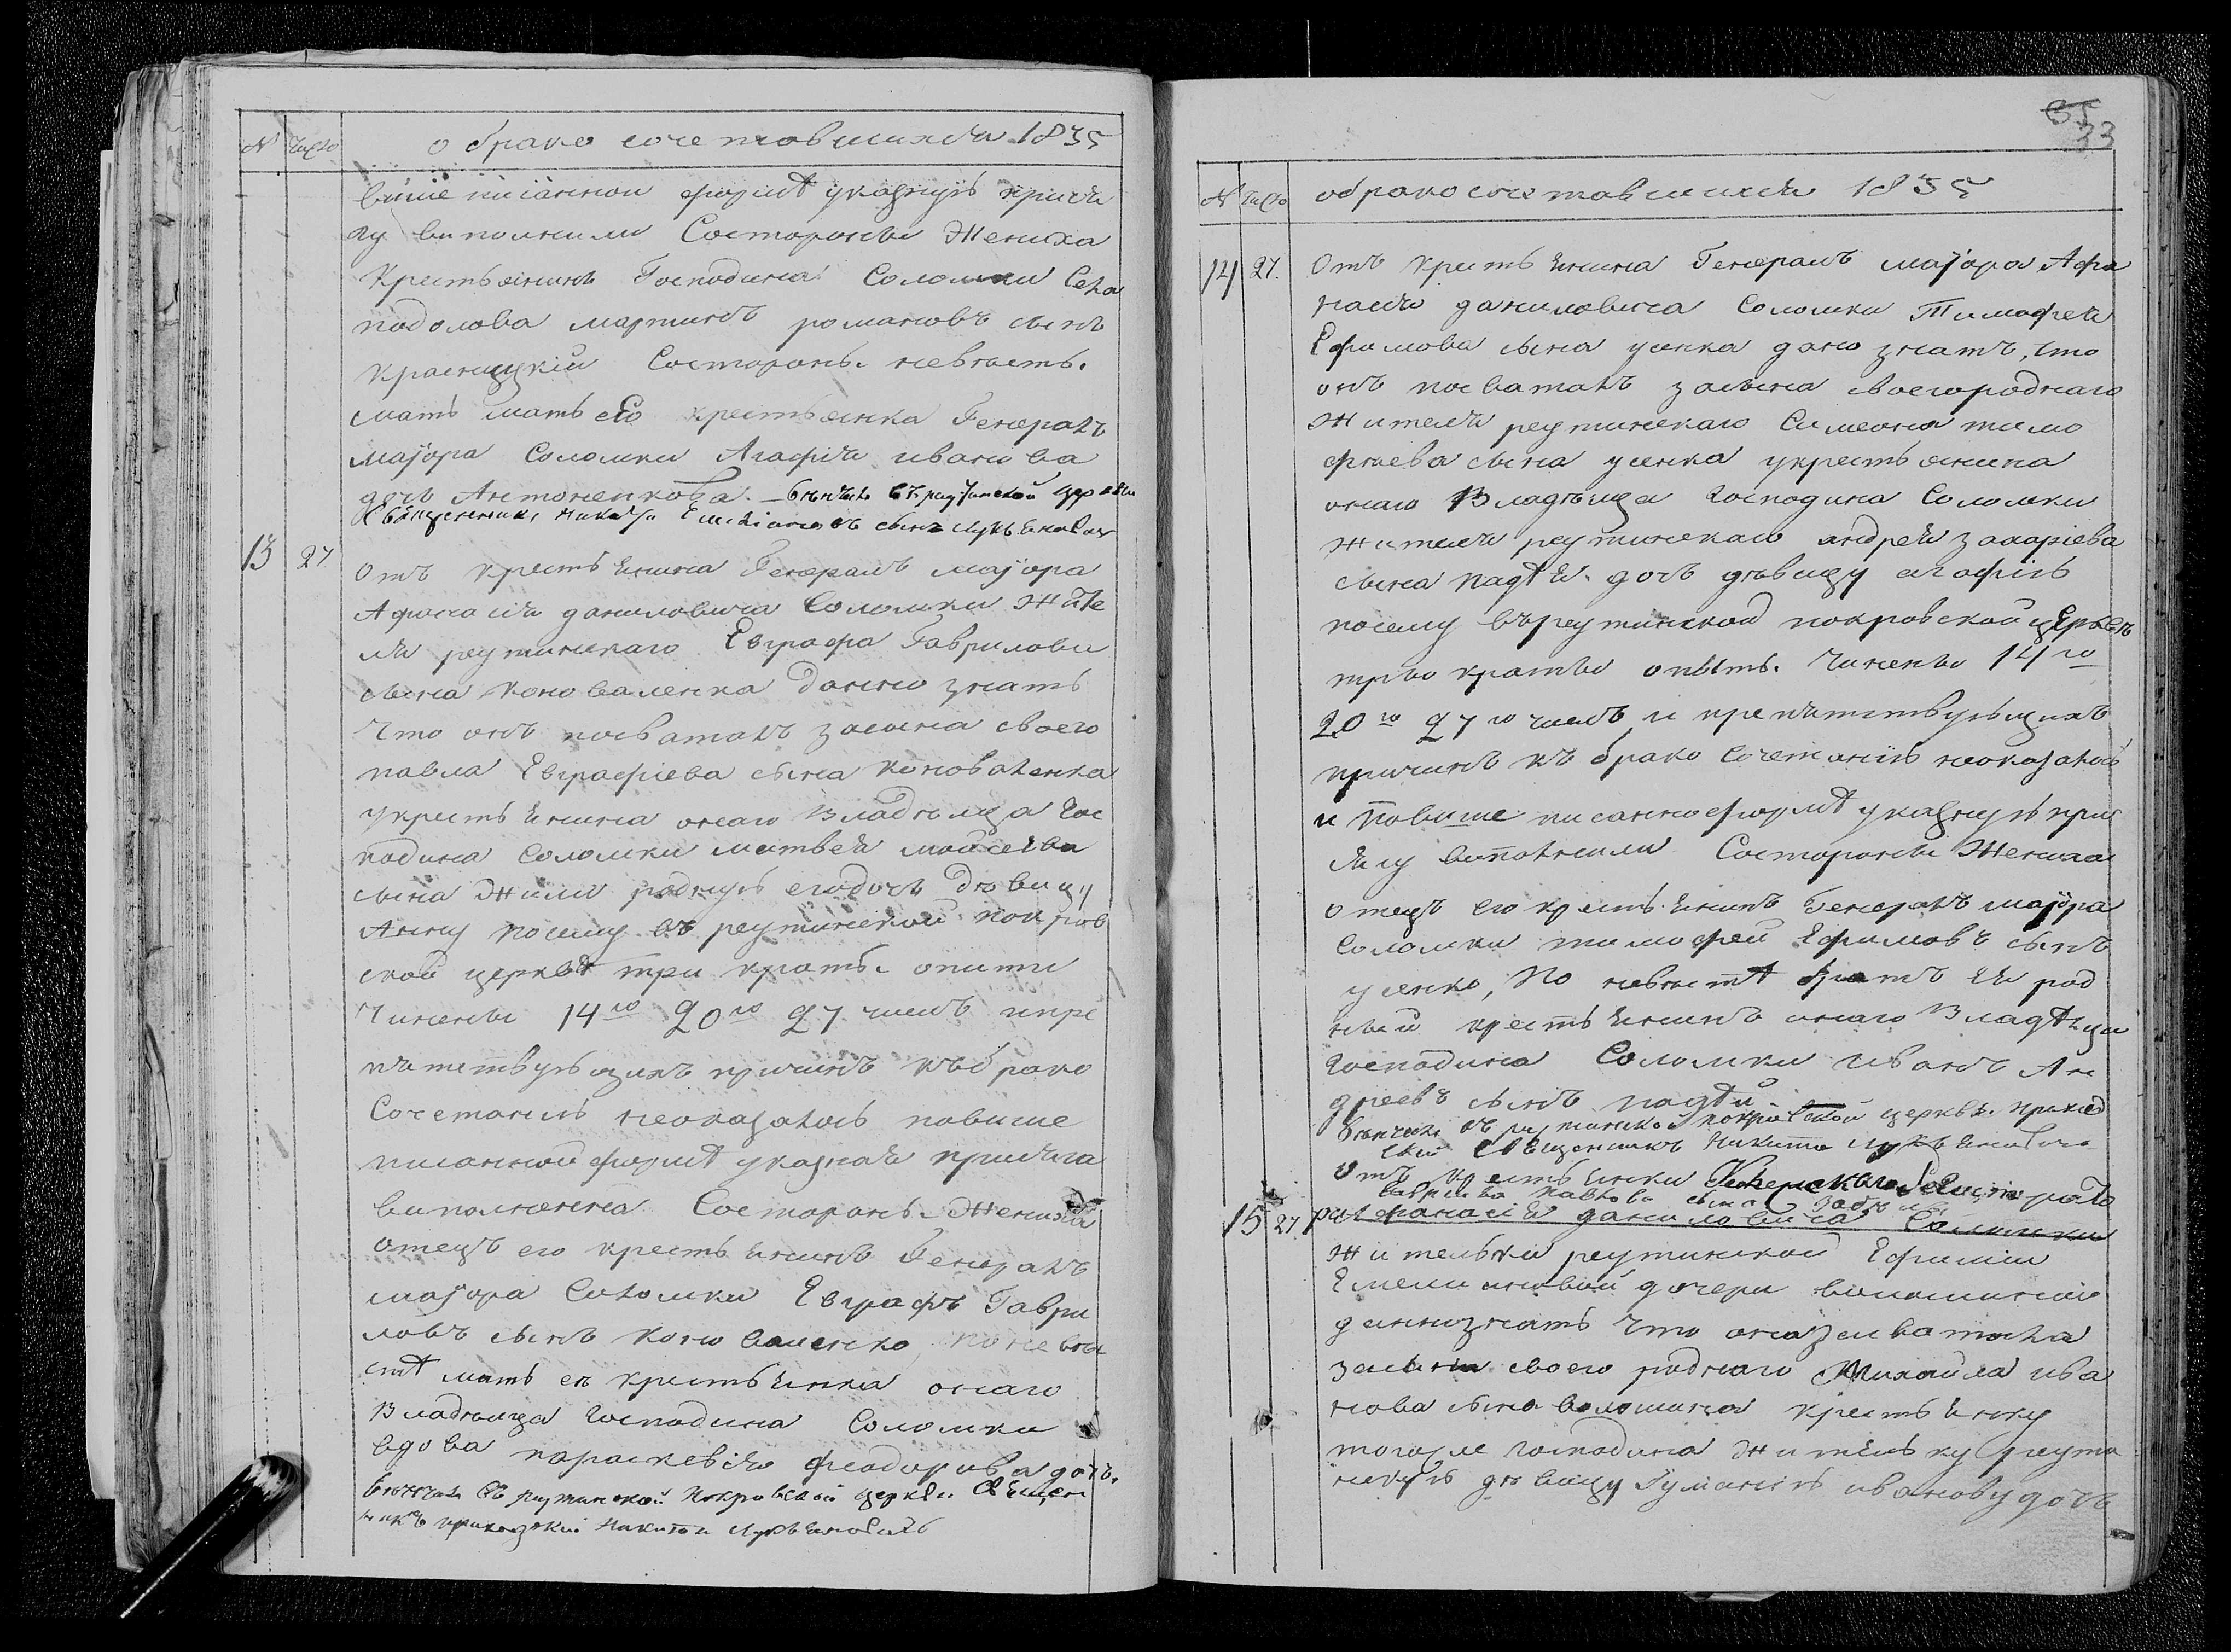 N число о бракосочетавшихся 1835
више писанной формѣ указную прися
гу виполнили Состороны Жениха
Крестьянинъ Господина Соломки Села
подолова мартинъ романовъ сынъ
Красницкій Состороны невѣсты.
мать мать его крестьянка Генералъ
маіора Соломки Агафія иванова
дочь Антоненкова. – Вѣнчалъ въ реутинской церкви
Священникъ Никита Емиліановъ сынъ Лукьяновичь
13 27 Отъ крестьянина Генералъ маіора
Афанасія даниловича Соломки Жите
ля реутинскаго Евграфа Гаврилова
сына коноваленка данно знать
Что онъ посваталъ засына своего
павла Евграфіева сына коноваленка
укрестьянина онаго Владѣльца Гос
подина Соломки матвея мойсеева
сына Жили родную егодочь дѣвицу
Анну посему въ реутинской покров
ской церквѣ три краты опити
Чинены 14го 20го 27 числъ ипре
пятствующихъ причинъ къбрако
Сочетанію неоказалось повише
писанной формѣ указная присяга
виполненна Состороны Жениха
отецъ его крестьянинъ Генералъ
маіора Соломки Евграфъ Гаври
ловъ сынъ коноваленко, по невѣ
стѣ мать ея крестьянка онаго
Владѣльца Господина Соломки
вдова параскевія феодорова дочь.
Вѣнчалъ въ реутинской Покровской церкви Священ
никъ приходзкій Никита Лукьяновичь
33
N число обракосочетавшихся 1835
14 27. Отъ крестьянина Генералъ маіора Афа
насія даниловича Соломки Тимофея
Ефимова сына усенка дано знать, что
онъ посваталъ засына своегороднаго
Жителя реутинскаго Симеона тимо
феева сына усенка укрестьянина
онаго Владѣльца Господина Соломки
жителя реутинскаго андрея захаріева
сына падѣя. дочь дѣвицу агафію
посему въреутинской покровской церьвѣ
трьо кратны опыты. Чинены 14го
20го 27го числъ и препятствующихъ
причинъ къ брако Сочетанію неоказалось
и повише писанно формѣ указную при
сягу виполнили Состороны Жениха
отецъ его крестьянинъ Генералъ маіора
Соломки тимофей Ефимовъ сынъ
усенко, По невѣстѣ братъ Ея род
ный крестьянинъ онаго Владѣльца
Господина Соломки иванъ Ан
дреевъ сынъ падѣй
Вѣнчалъ въ реутинской покровской церквѣ. приход
скій Священникъ Никита Лукьяновичь
Отъ крестьянки
Гаврила Павлова сына
15 27. Афанасія даниловича Соломки
жительки реутинской Ефимии
Емелиановой дочери
даннознать Что она засватала
засына своего роднаго Михаила ива
нова сына волошина крестьянку
тогоже Господина жительку реути
нскую дѣвицу Гуманію иванову дочь